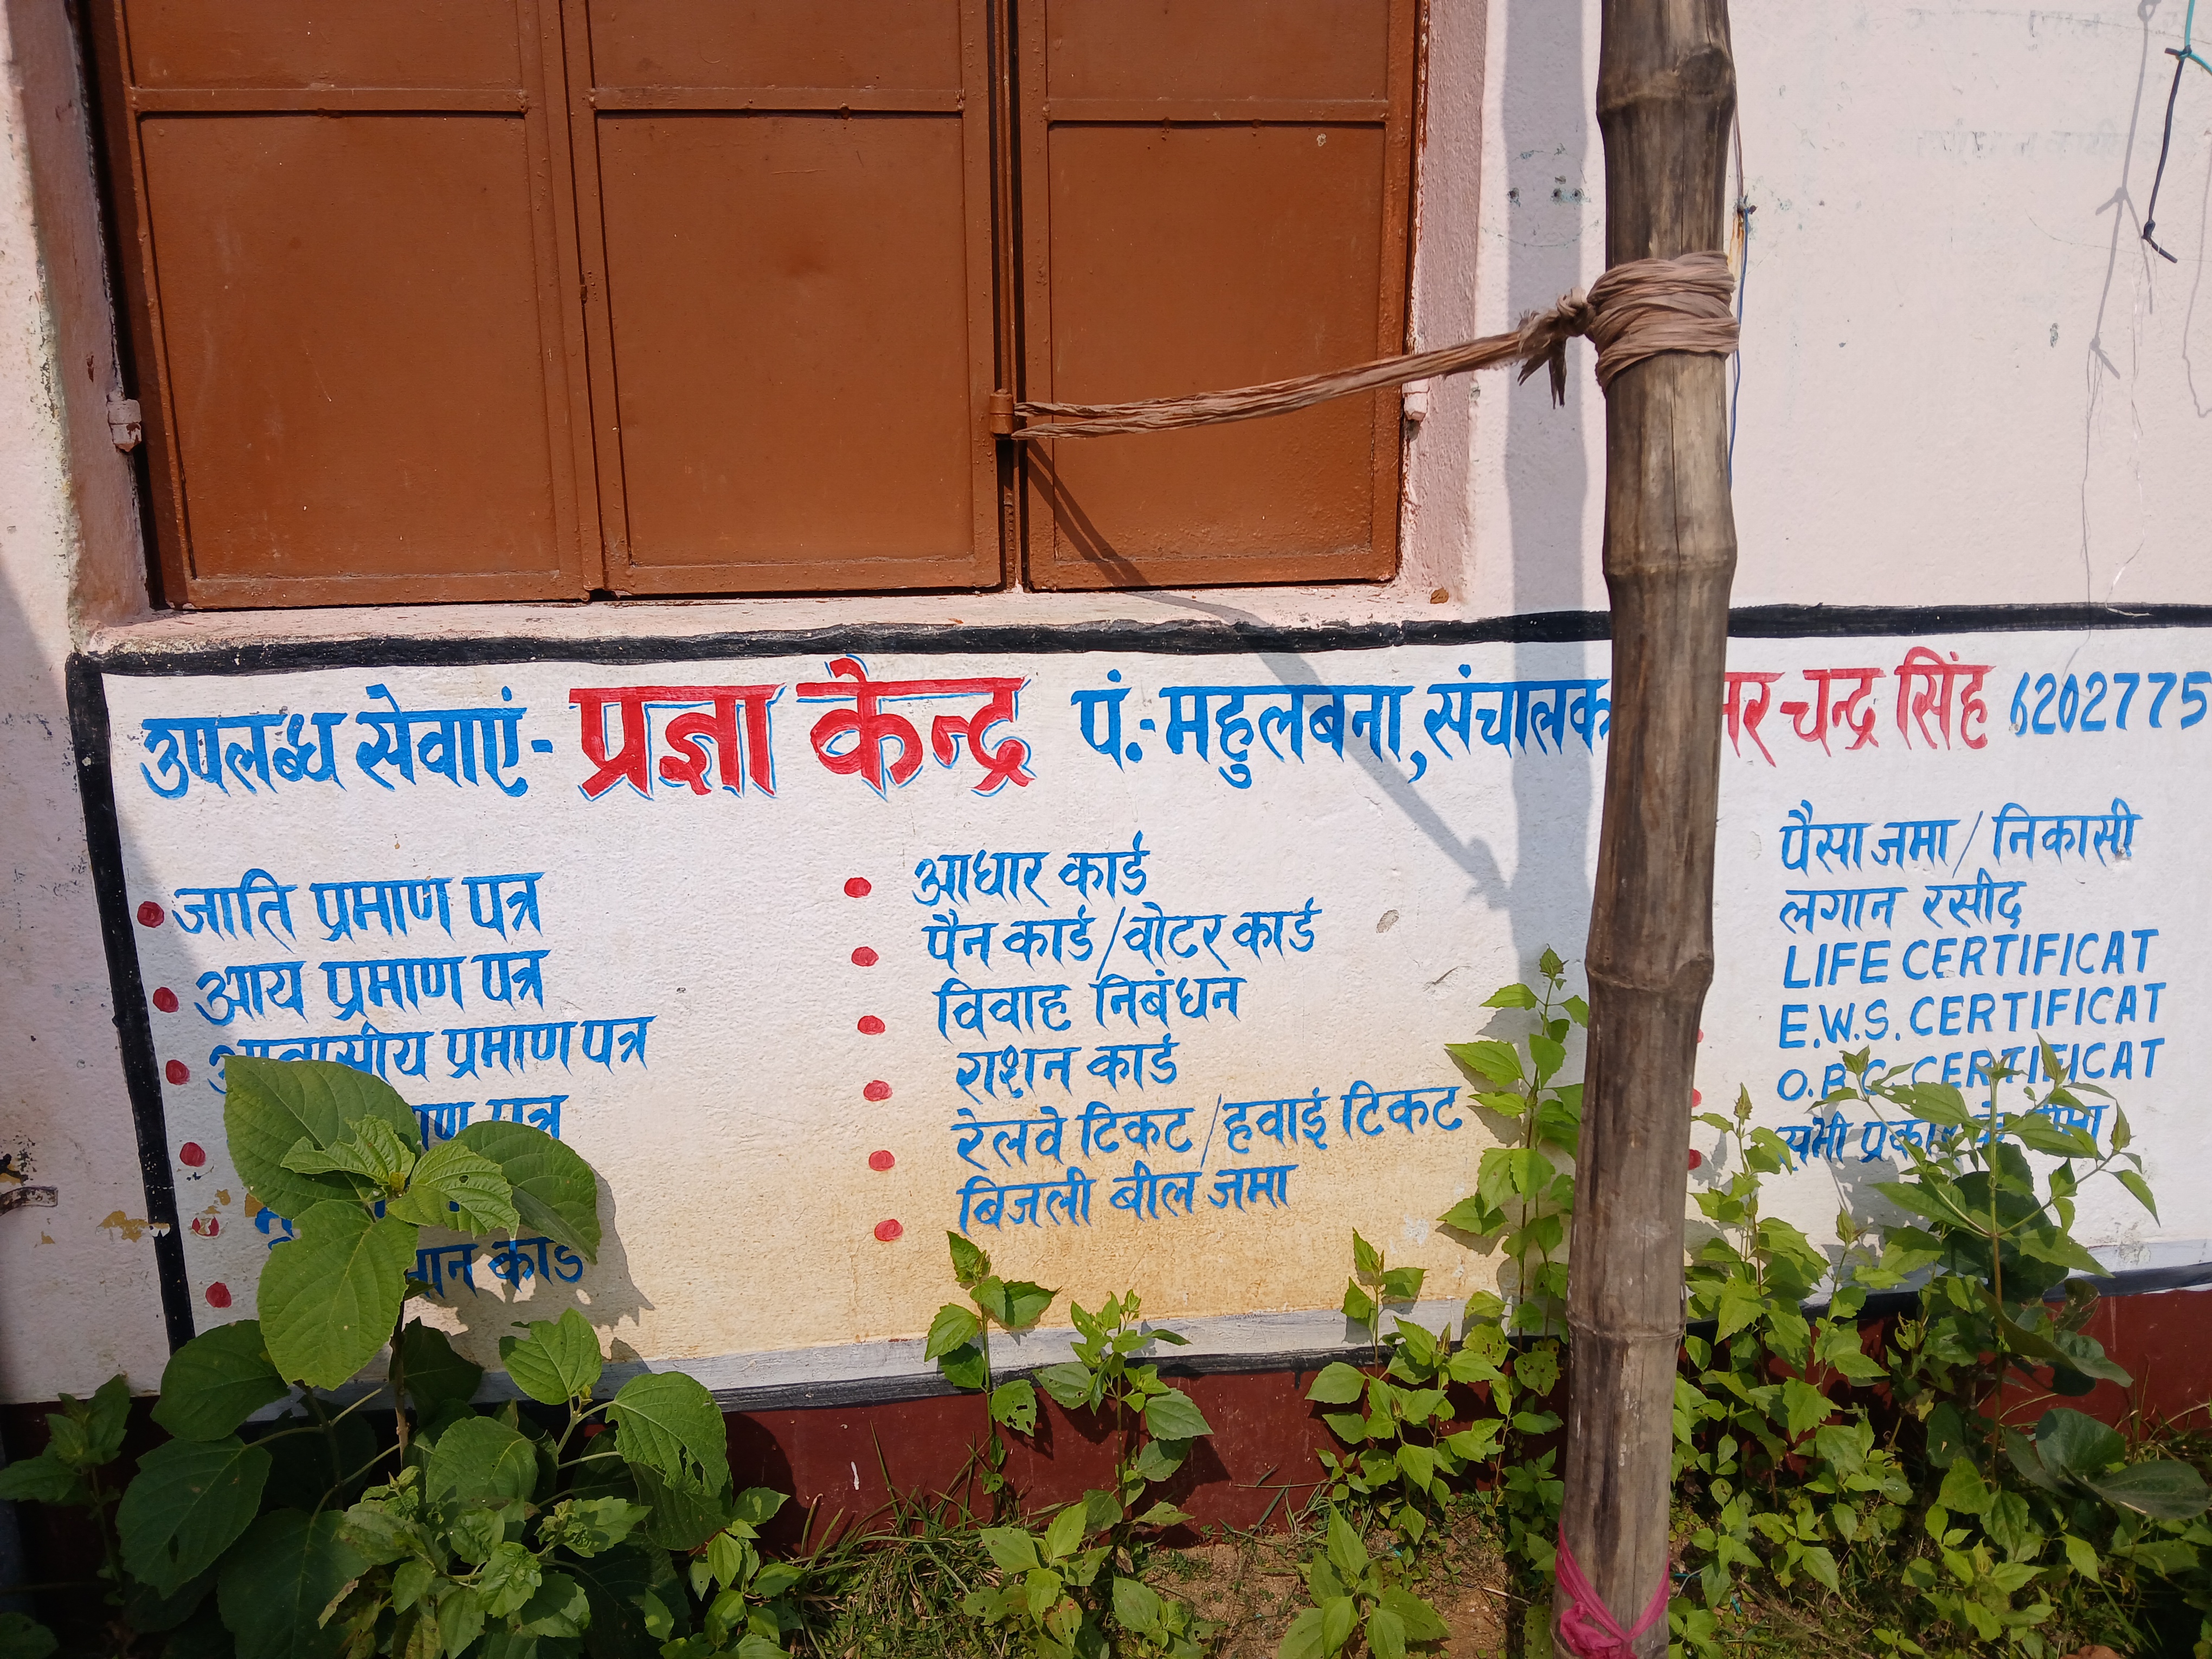 उपलब्ध सेवाएं- प्रज्ञा केन्द्र पं.-महुलबना, संचालक चन्द्र सिंह 6202775
जाति प्रमाण पत्र
आय प्रमाण पत्र
आवासीय प्रमाण पत्र
पत्र
कार्ड
आधार कार्ड
पैन कार्ड/वोटर कार्ड
विवाह निबंधन
राशन कार्ड
रेलवे टिकट/हवाई टिकट
बिजली बील जमा
पैसा जमा/निकासी
लगान रसीद
LIFE CERTIFICAT
E.W.S. CERTIFICAT
O.B.C. CERTIFICAT
सभी प्रकार के बीमा